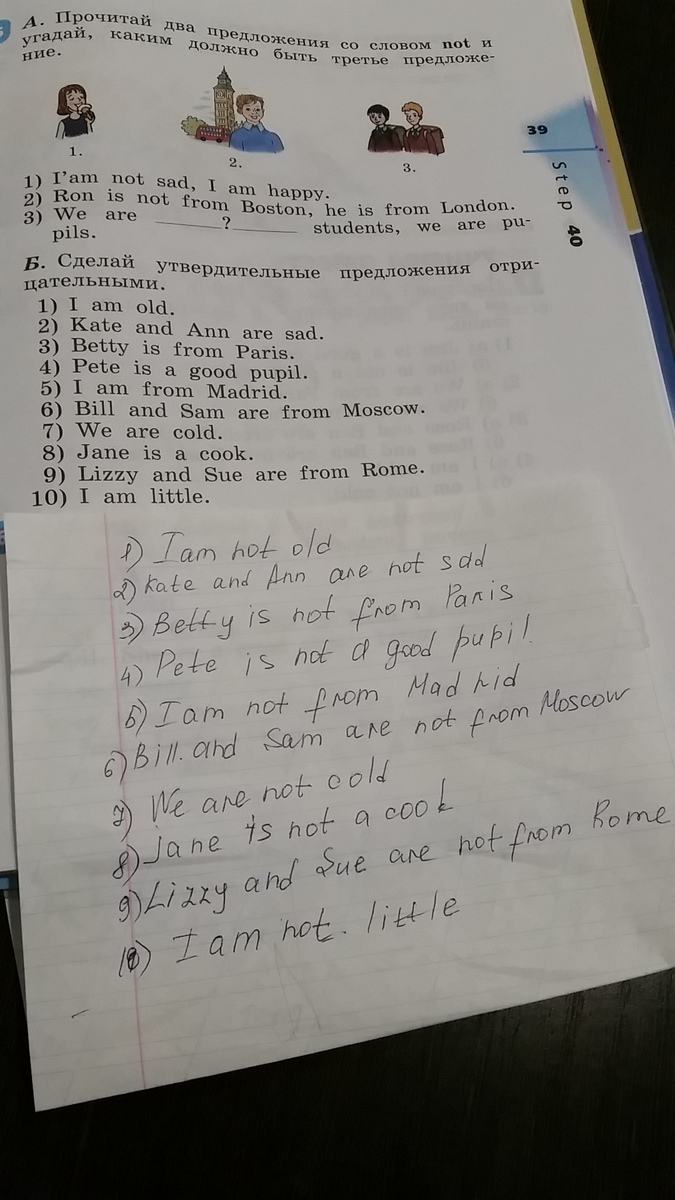 А. Прочитай два предложения со словом not и
угадай, каким должно быть третье предложе-
ние.
1.
2.
3.
39
Step 40
1) I'am not sad, I am happy.
2) Ron is not from Boston, he is from London.
3) We are ______?______ students, we are pu-
pils.
Б. Сделай утвердительные предложения отри-
цательными.
1) I am old.
2) Kate and Ann are sad.
3) Betty is from Paris.
4) Pete is a good pupil.
5) I am from Madrid.
6) Bill and Sam are from Moscow.
7) We are cold.
8) Jane is a cook.
9) Lizzy and Sue are from Rome.
10) I am little.
1) I am not old
2) Kate and Ann are not sad
3) Betty is not from Paris
4) Pete is not a good pupil.
5) I am not from Madrid
6) Bill. and Sam are not from Moscow
7) We are not cold
8) Jane is not a cook
9) Lizzy and Sue are not from Rome
10) I am not. little